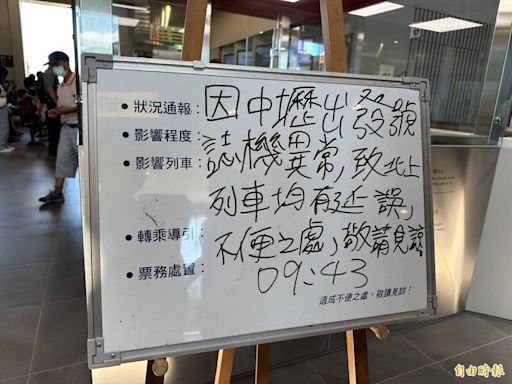 • 狀況通報：因中壢出發號
• 影響程度：誌機異常，致北上
• 影響列車：
列車均有延誤，
• 轉乘導引：不便之處，敬請見諒
• 票務處置：09:43
造成不便之處，敬請見諒！
自由時報